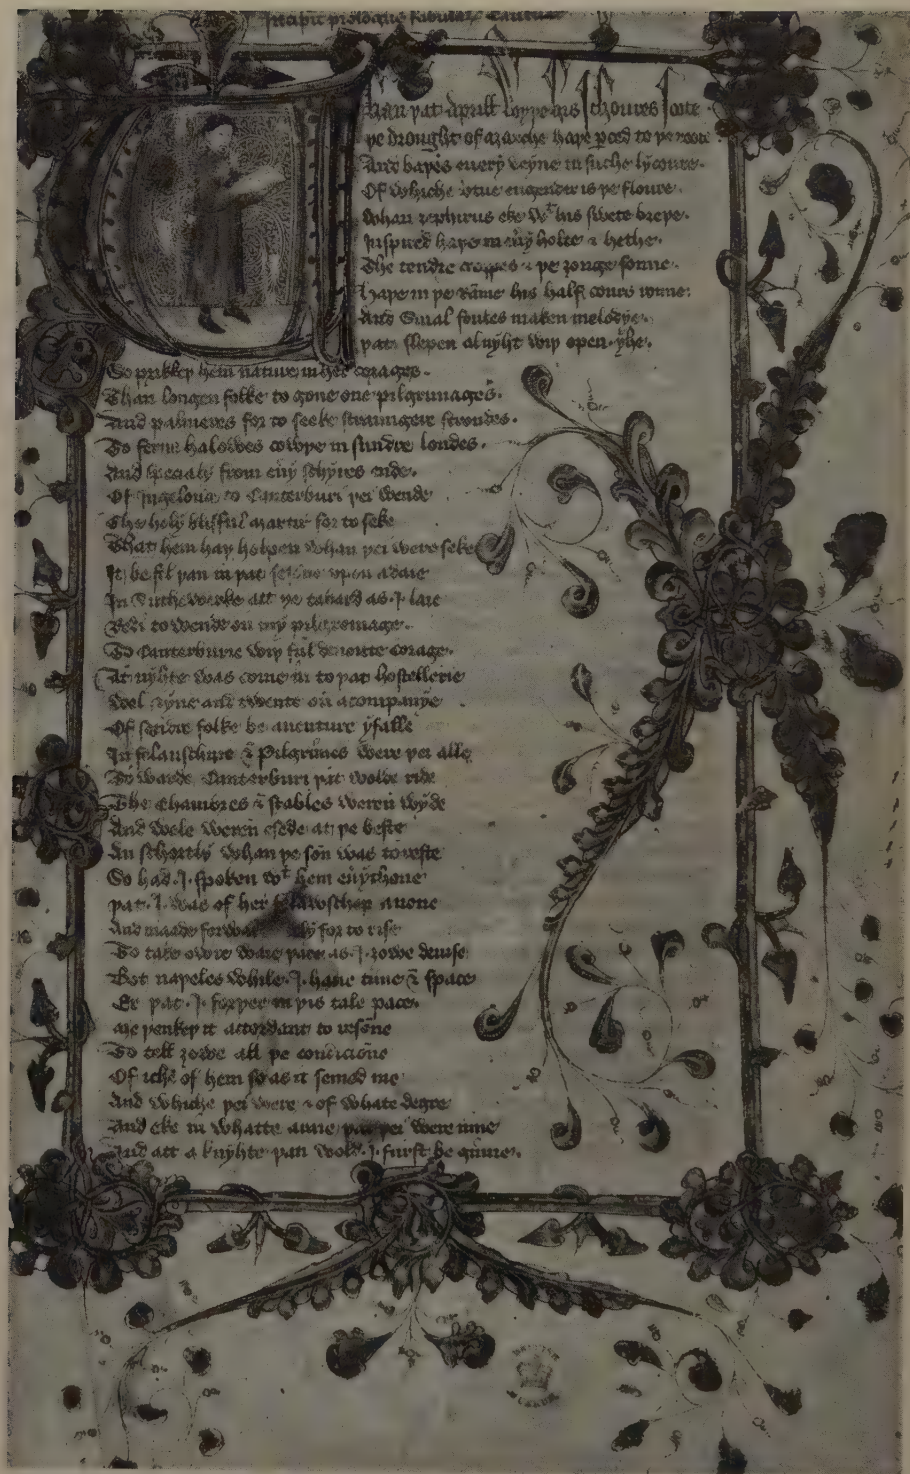 Incipit prologus fabularum Cantuar
Whan þat Aprill wyþ his schoures sote
þe drought of marche haþe perced to þe rote
And baþed euery veyne in suche lycoure
Of whiche vertue engendred is þe floure
Whan zephirus eke wt his swete breþe
Inspired haþe in euy holte & hethe
The tendre croppes & þe ȝonge sonne
haþe in þe Rame his half cours ronne
And smal foules maken melodye
þat slepen al nyht wiþ open yhe
So prikkeþ hem nature in her corages
Than longen folke to gone one pilgrimages
And palmeres for to seeke straungere strondes
To ferne halowes cowþe in sundre londes
And specialy from euy schyres ende
Of Ingelond to Canterburi þei wende
The holy blisful martir for to seke
That hem haþ holpen whan þei were seke
It befil þan in þat sesoune vpon a daie
In Suthewerke att þe tabard as I laie
Redi to wende on my pilgremage
To Canterburie wiþ ful deuoute corage
At nyhte was come in to þat hostellerie
Wel nyne and twente on a companye
Of sundre folke be auenture yfalle
In felauschipe & Pilgrimes were þei alle
To warde Canterburi þat wolde ride
The Chambres & stables weren wyde
And wele weren esede at þe beste
An schortly whan þe son was to reste
So had I spoken wt hem euychone
þat I was of her felawschep anone
And maade forward for to rise
To take owre waie þere as I ȝowe deuise
Bot naþeles while I haue time & space
Er þat I forþer in þis tale pace
me þenkeþ it accordant to resone
To tell ȝowe all þe condicione
Of iche of hem so as it semed me
And whiche þei were & of whate degre
And eke in whatte araie þat þei were inne
And att a knyhte þan wold I furst be ginne